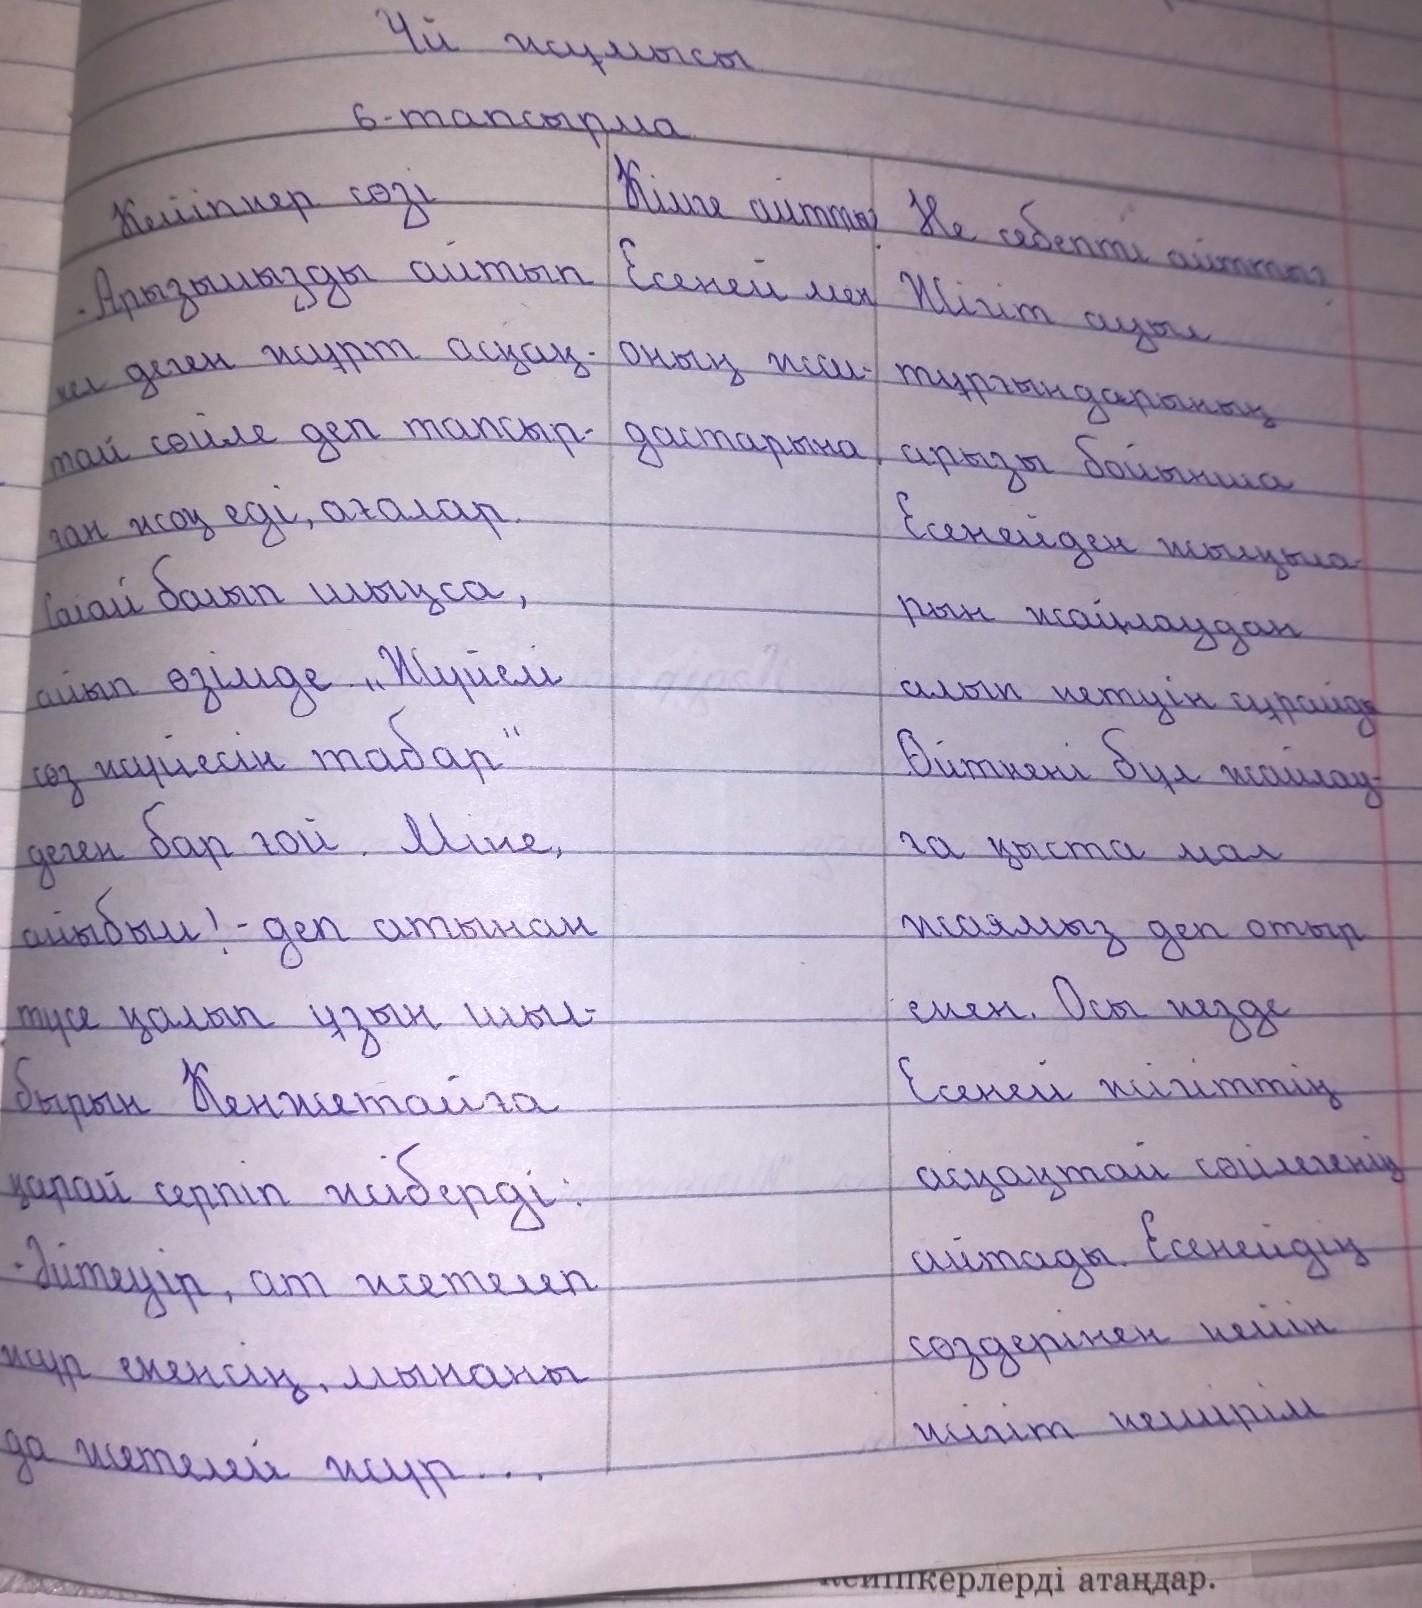 Үй жұмысы
6-тапсырма
Кейіпкер сөзі
- Арызымызды айтып
кел деген жұрт асқақ-
тай сөйле деп тапсыр-
ған жоқ еді, ағалар.
Солай болып шықса,
айып өзімде „Жүйелі
сөз жүйесін табар"
деген бар ғой. Міне,
айыбым! - деп атынан
түсе қалып ұзын шыл-
бырын Кенжетайға
қарай серпіп жіберді:
- Әйтеуір, ат жетелеп
жүр екенсің, мынаны
да жетелей жүр ...
Кімге айтты?
Есеней мен
оның жол-
дастарына
Не себепті айтты?
Жігіт ауыл
тұрғындарының
арызы бойынша
Есенейден жылқыла-
рын жайлаудан
алып кетуін сұрайды
Өйткені бұл жайлау-
ға қыста мал
жаямыз деп отыр
екен. Осы кезде
Есеней жігіттің
асқақтай сөйлегенің
айтады. Есенейдің
сөздерінен кейін
жігіт кешірім
кейіпкерлерді атаңдар.